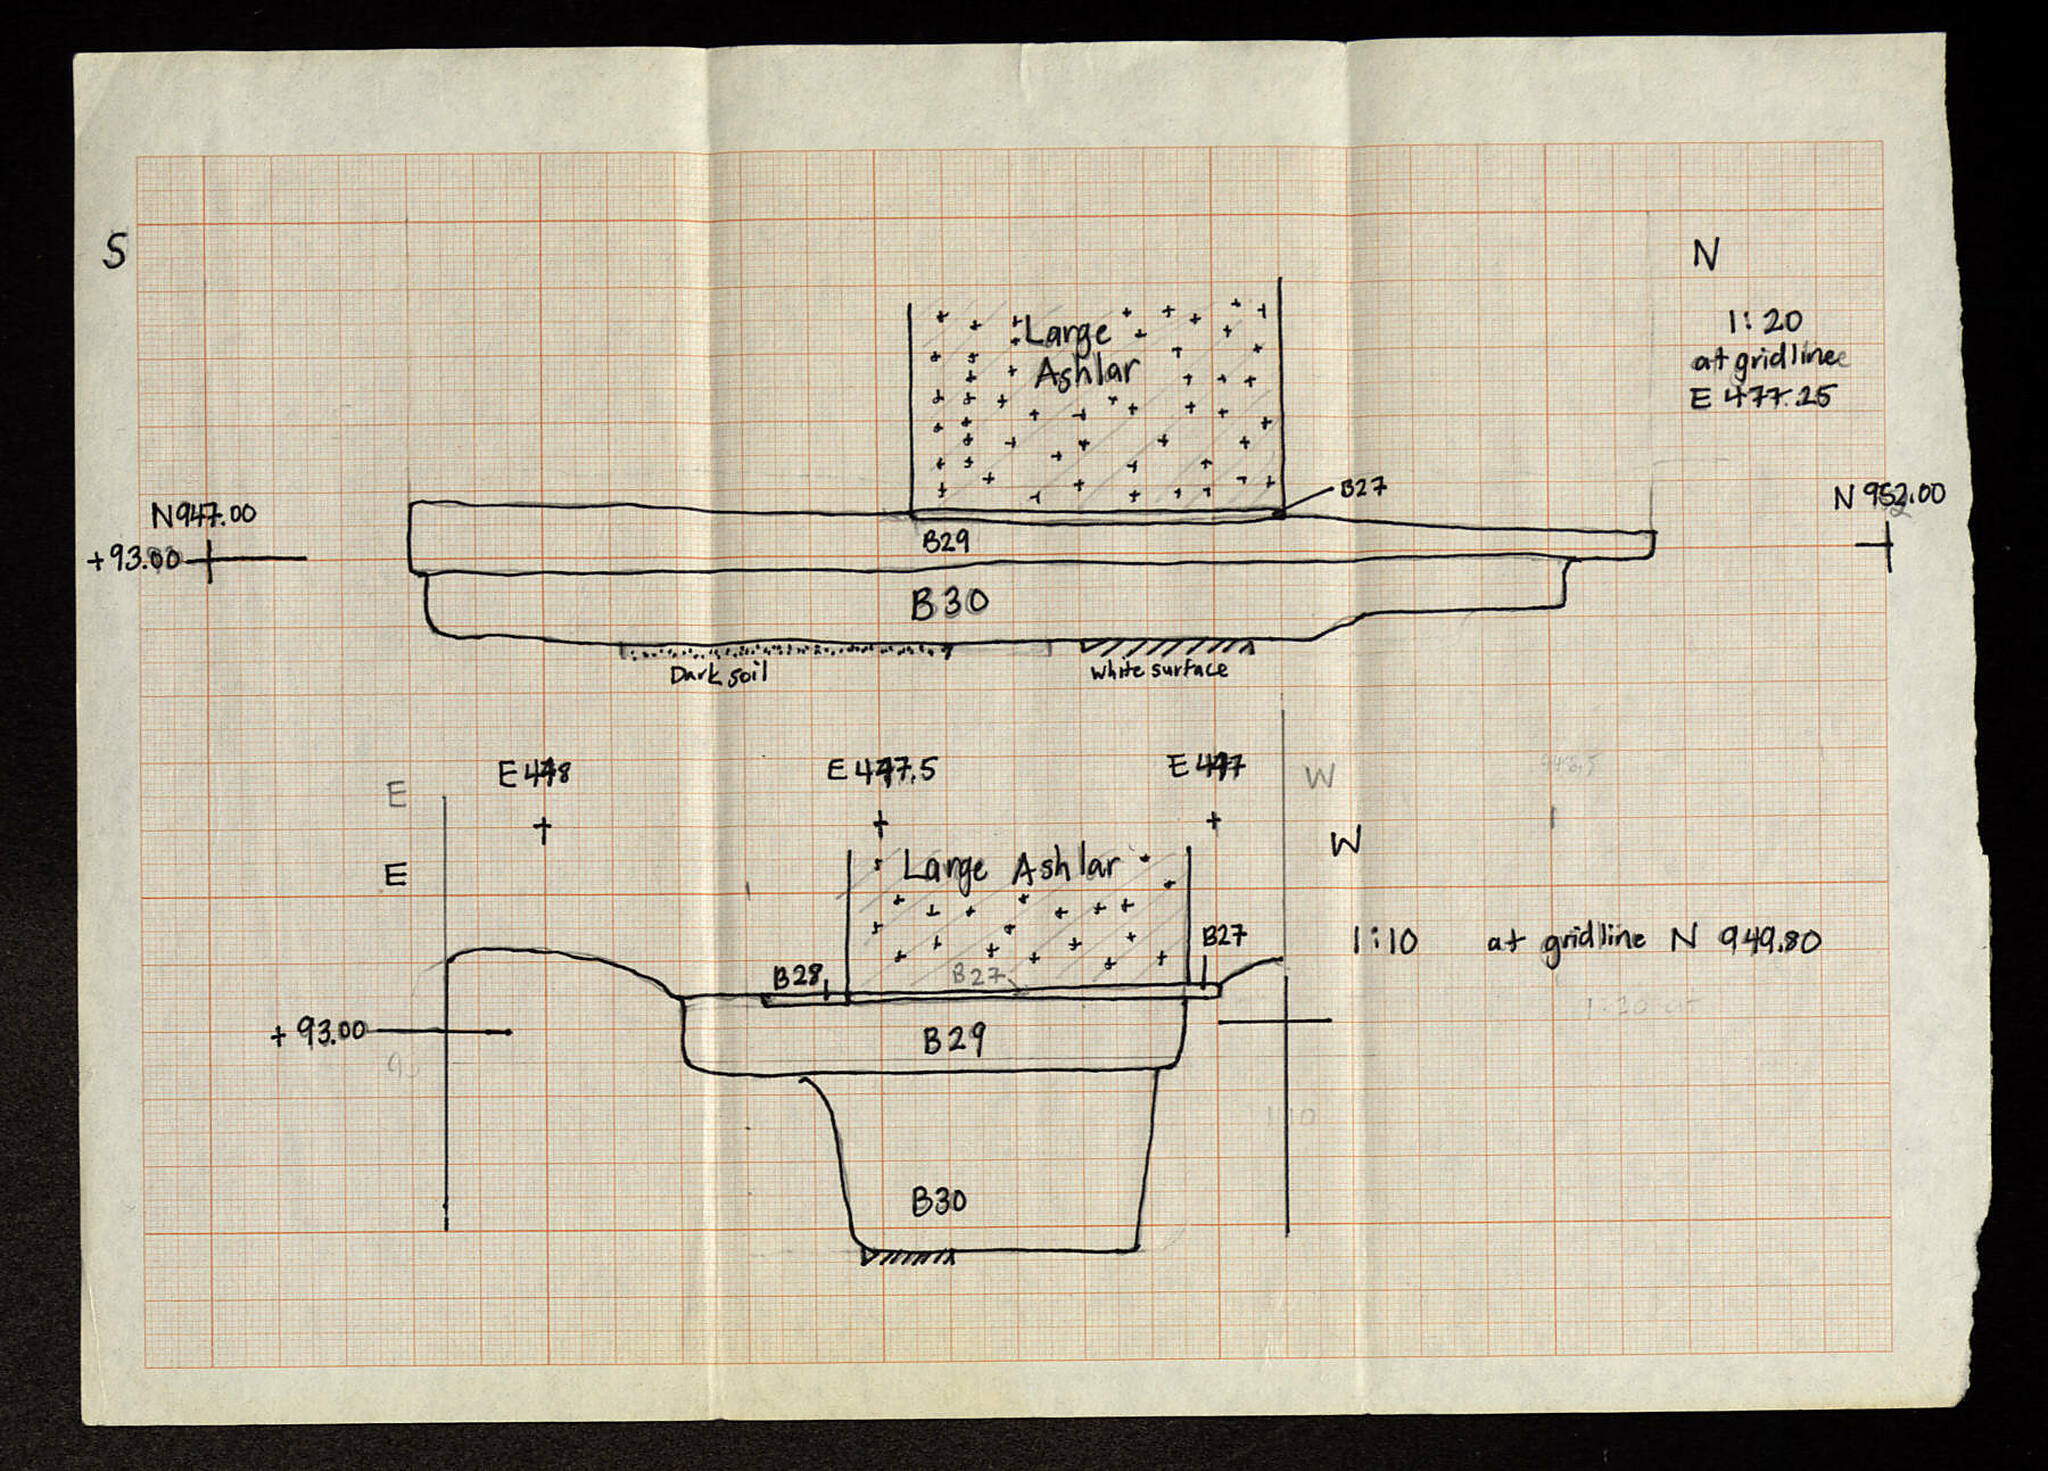 S
N
1:20
at gridline
E 477.25
Large
Ashlar
B27
N 947.00
N 952.00
+93.00
B29
B30
Dark soil
White surface
E 478
E 477.5
E 477
E
W
E
W
Large Ashlar
B27
1:10 at gridline N 949.80
B28
B27
1:20 at
+93.00
B29
1:10
B30